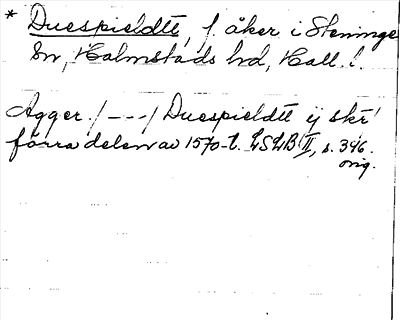 * Duespieldtt, f. åker i Steninge
sn, Halmstads hd, Hall. l.
Agger /---/ Duespieldtt ij skr
förra delen av 1570-t. LSLB II, s. 346.
orig.